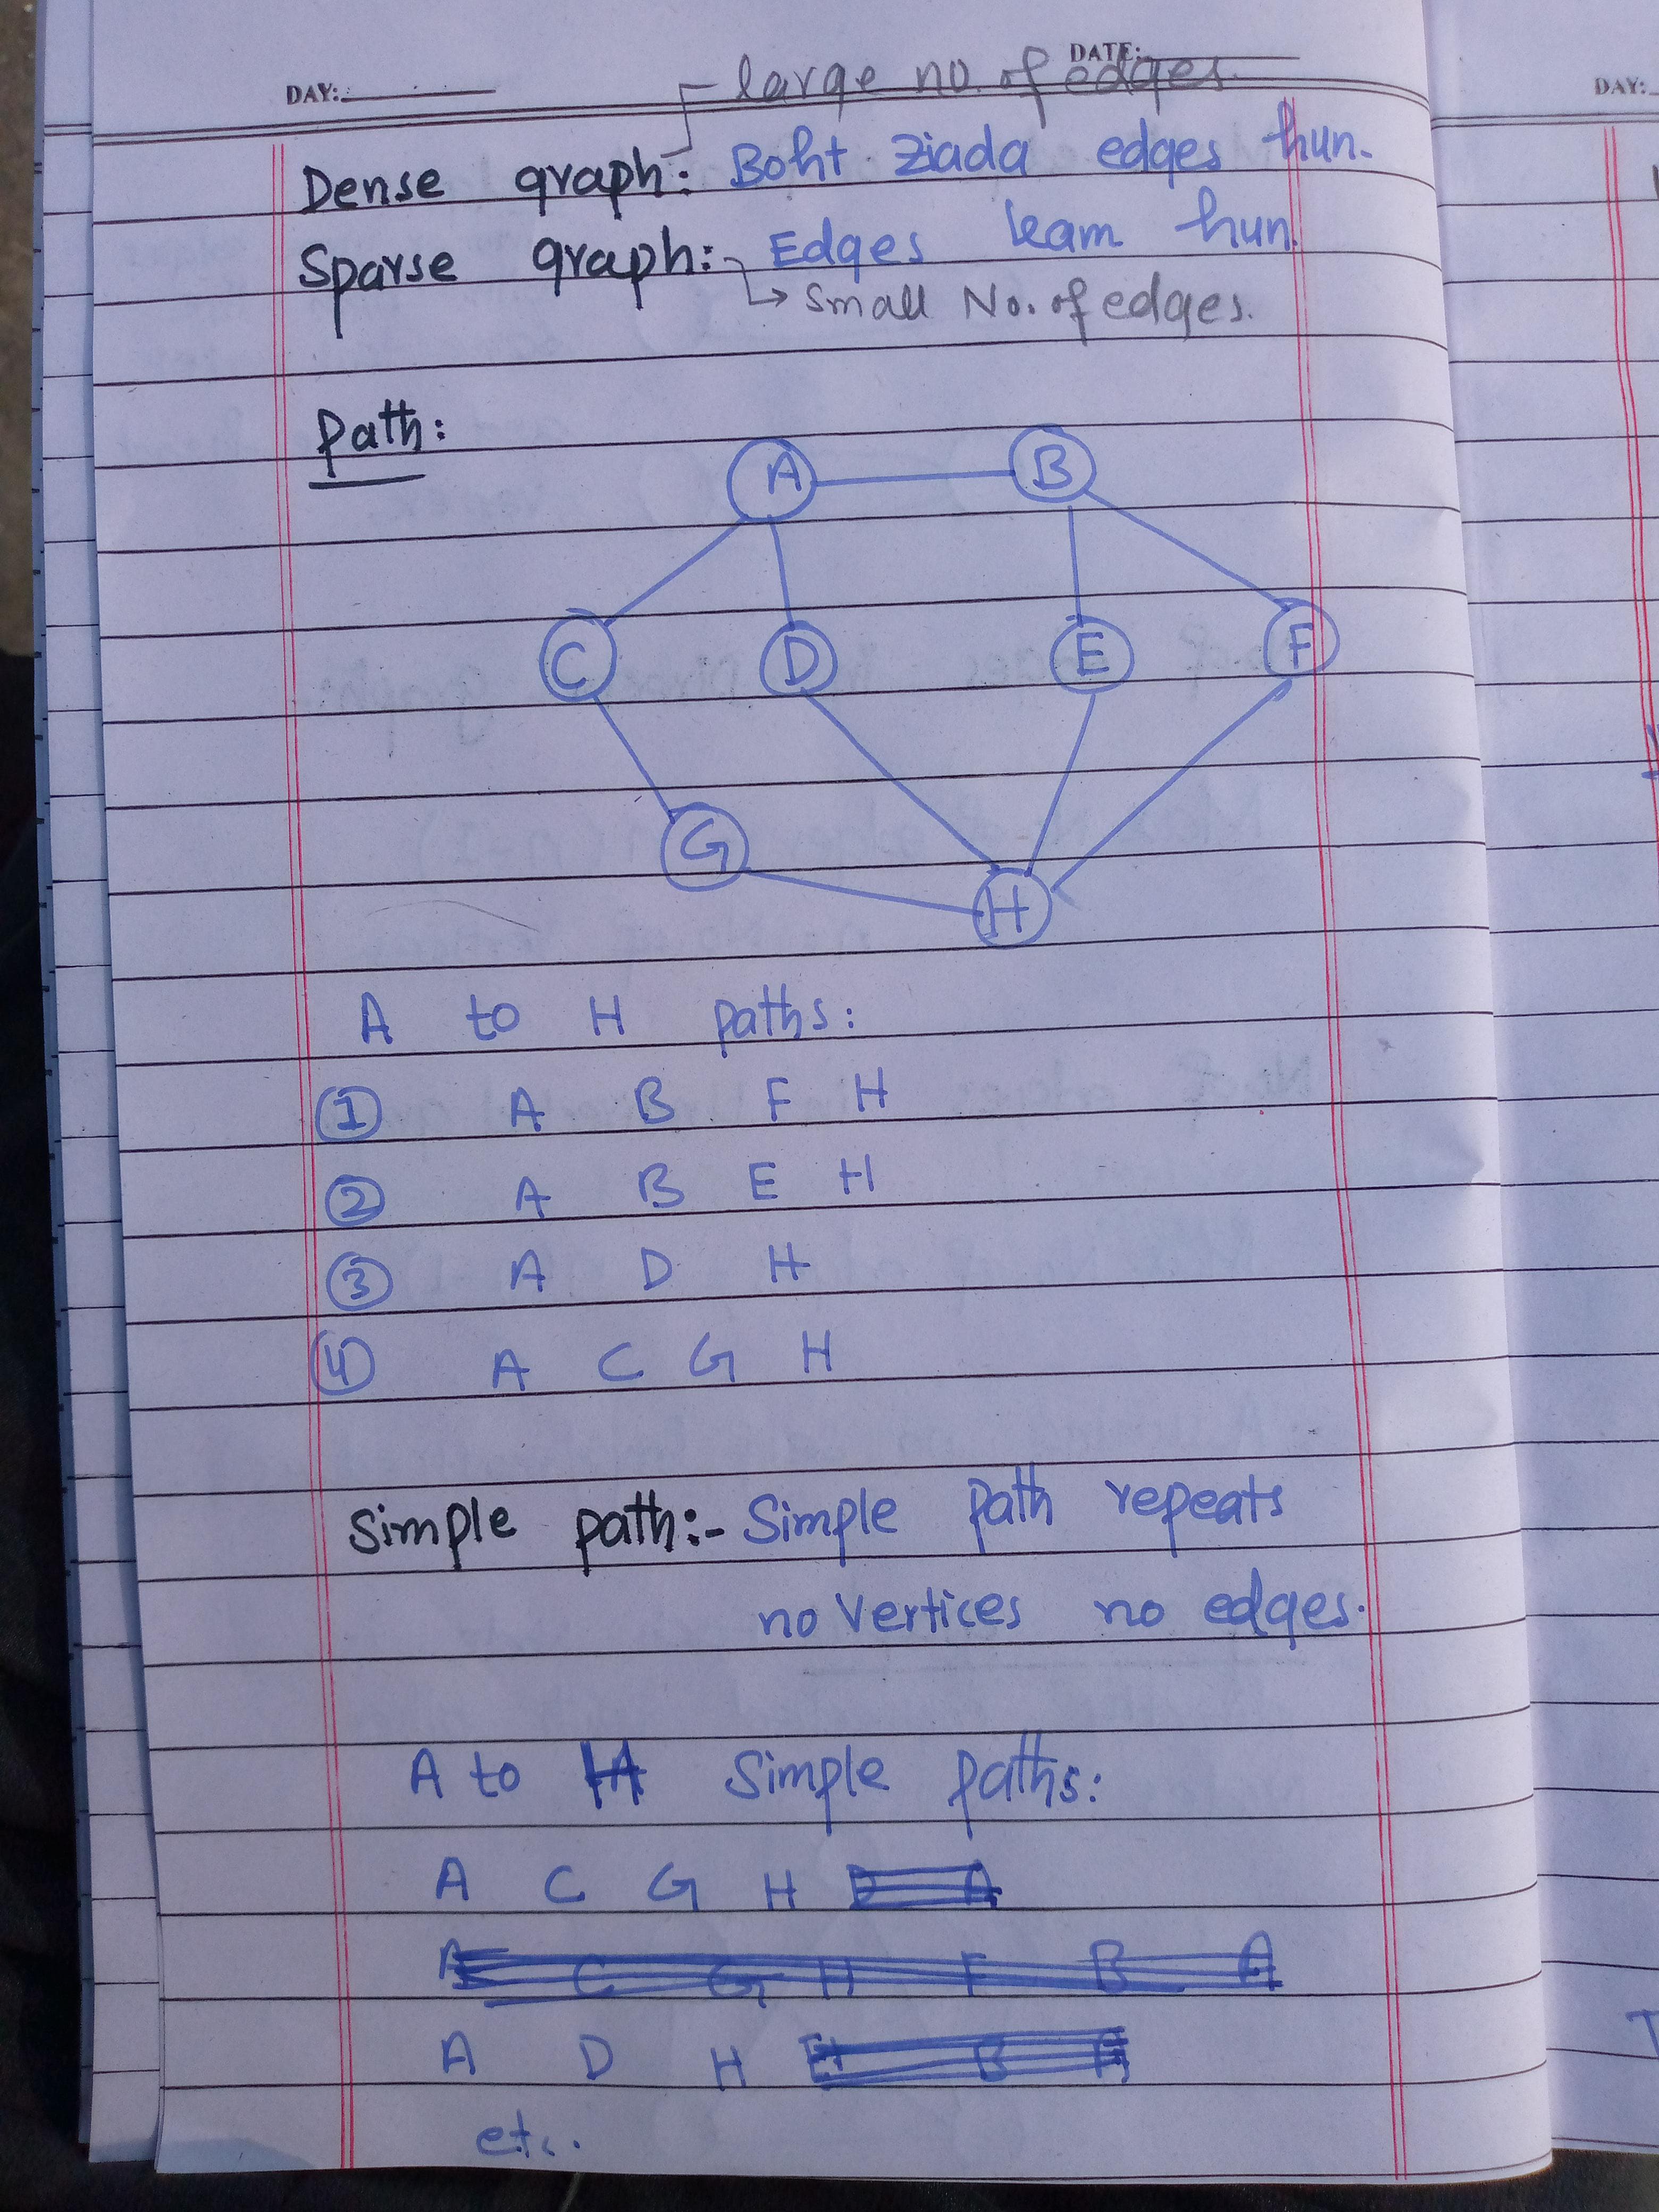 DAY: DATE:
large no. of edges.
Dense graph: Boht Ziada edges hun.
Sparse graph: Edges kam hun.
→ Small No. of edges.
Path:
A B
C D E F
G
H
A to H paths:
1 A B F H
2 A B E H
3 A D H
4 A C G H
Simple path:- Simple path repeats
no vertices no edges.
A to H Simple paths:
A C G H D A
A C G H F B A
A D H E B A
etc.
DAY: